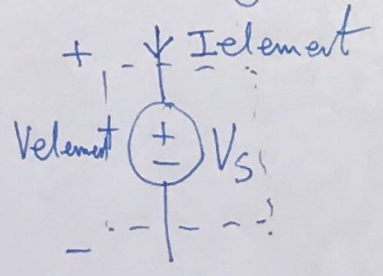 + Ielement
Velement + Vs
−
−